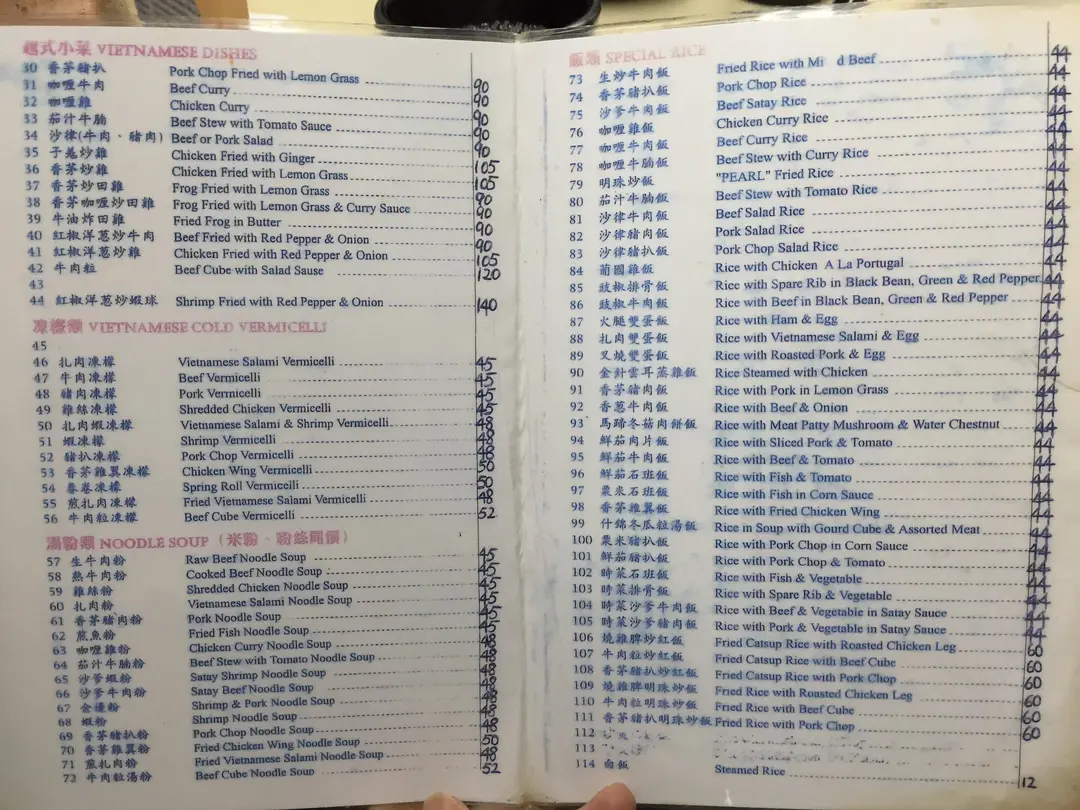 越式小菜 VIETNAMESE DISHES
30 香茅豬扒 Pork Chop Fried with Lemon Grass 90
31 咖喱牛肉 Beef Curry 90
32 咖喱雞 Chicken Curry 90
33 茄汁牛腩 Beef Stew with Tomato Sauce 90
34 沙律(牛肉、豬肉) Beef or Pork Salad 90
35 子羗炒雞 Chicken Fried with Ginger 105
36 香茅炒雞 Chicken Fried with Lemon Grass 105
37 香茅炒田雞 Frog Fried with Lemon Grass 90
38 香茅咖喱炒田雞 Frog Fried with Lemon Grass & Curry Sauce 90
39 牛油炸田雞 Fried Frog in Butter 90
40 紅椒洋蔥炒牛肉 Beef Fried with Red Pepper & Onion 90
41 紅椒洋蔥炒雞 Chicken Fried with Red Pepper & Onion 105
42 牛肉粒 Beef Cube with Salad Sause 120
43
44 紅椒洋蔥炒蝦球 Shrimp Fried with Red Pepper & Onion 140
凍檬類 VIETNAMESE COLD VERMICELLI
45
46 扎肉凍檬 Vietnamese Salami Vermicelli 45
47 牛肉凍檬 Beef Vermicelli 45
48 豬肉凍檬 Pork Vermicelli 45
49 雞絲凍檬 Shredded Chicken Vermicelli 45
50 扎肉蝦凍檬 Vietnamese Salami & Shrimp Vermicelli 48
51 蝦凍檬 Shrimp Vermicelli 48
52 豬扒凍檬 Pork Chop Vermicelli 48
53 香茅雞翼凍檬 Chicken Wing Vermicelli 50
54 春卷凍檬 Spring Roll Vermicelli 50
55 煎扎肉凍檬 Fried Vietnamese Salami Vermicelli 48
56 牛肉粒凍檬 Beef Cube Vermicelli 52
湯粉類 NOODLE SOUP (米粉、粉絲同價)
57 生牛肉粉 Raw Beef Noodle Soup 45
58 熟牛肉粉 Cooked Beef Noodle Soup 45
59 雞絲粉 Shredded Chicken Noodle Soup 45
60 扎肉粉 Vietnamese Salami Noodle Soup 45
61 香茅豬肉粉 Pork Noodle Soup 45
62 煎魚粉 Fried Fish Noodle Soup 45
63 咖喱雞粉 Chicken Curry Noodle Soup 48
64 茄汁牛腩粉 Beef Stew with Tomato Noodle Soup 48
65 沙爹蝦粉 Satay Shrimp Noodle Soup 48
66 沙爹牛肉粉 Satay Beef Noodle Soup 48
67 金邊粉 Shrimp & Pork Noodle Soup 48
68 蝦粉 Shrimp Noodle Soup 48
69 香茅豬扒粉 Pork Chop Noodle Soup 48
70 香茅雞翼粉 Fried Chicken Wing Noodle Soup 50
71 煎扎肉粉 Fried Vietnamese Salami Noodle Soup 48
72 牛肉粒湯粉 Beef Cube Noodle Soup 52
飯類 SPECIAL RICE
73 生炒牛肉飯 Fried Rice with Mi d Beef 44
74 香茅豬扒飯 Pork Chop Rice 44
75 沙爹牛肉飯 Beef Satay Rice 44
76 咖喱雞飯 Chicken Curry Rice 44
77 咖喱牛肉飯 Beef Curry Rice 44
78 咖喱牛腩飯 Beef Stew with Curry Rice 44
79 明珠炒飯 "PEARL" Fried Rice 44
80 茄汁牛腩飯 Beef Stew with Tomato Rice 44
81 沙律牛肉飯 Beef Salad Rice 44
82 沙律豬肉飯 Pork Salad Rice 44
83 沙律豬扒飯 Pork Chop Salad Rice 44
84 葡國雞飯 Rice with Chicken A La Portugal 44
85 豉椒排骨飯 Rice with Spare Rib in Black Bean, Green & Red Pepper 44
86 豉椒牛肉飯 Rice with Beef in Black Bean, Green & Red Pepper 44
87 火腿雙蛋飯 Rice with Ham & Egg 44
88 扎肉雙蛋飯 Rice with Vietnamese Salami & Egg 44
89 叉燒雙蛋飯 Rice with Roasted Pork & Egg 44
90 金針雲耳蒸雞飯 Rice Steamed with Chicken 44
91 香茅豬肉飯 Rice with Pork in Lemon Grass 44
92 香蔥牛肉飯 Rice with Beef & Onion 44
93 馬蹄冬菇肉餅飯 Rice with Meat Patty Mushroom & Water Chestnut 44
94 鮮茄肉片飯 Rice with Sliced Pork & Tomato 44
95 鮮茄牛肉飯 Rice with Beef & Tomato 44
96 鮮茄石班飯 Rice with Fish & Tomato 44
97 粟米石班飯 Rice with Fish in Corn Sauce 44
98 香茅雞翼飯 Rice with Fried Chicken Wing 44
99 什錦冬瓜粒湯飯 Rice in Soup with Gourd Cube & Assorted Meat 44
100 粟米豬扒飯 Rice with Pork Chop in Corn Sauce 44
101 鮮茄豬扒飯 Rice with Pork Chop & Tomato 44
102 時菜石班飯 Rice with Fish & Vegetable 44
103 時菜排骨飯 Rice with Spare Rib & Vegetable 44
104 時菜沙爹牛肉飯 Rice with Beef & Vegetable in Satay Sauce 44
105 時菜沙爹豬肉飯 Rice with Pork & Vegetable in Satay Sauce 44
106 燒雞脾炒紅飯 Fried Catsup Rice with Roasted Chicken Leg 60
107 牛肉粒炒紅飯 Fried Catsup Rice with Beef Cube 60
108 香茅豬扒炒紅飯 Fried Catsup Rice with Pork Chop 60
109 燒雞脾明珠炒飯 Fried Rice with Roasted Chicken Leg 60
110 牛肉粒明珠炒飯 Fried Rice with Beef Cube 60
111 香茅豬扒明珠炒飯 Fried Rice with Pork Chop 60
112
113
114 白飯 Steamed Rice 12